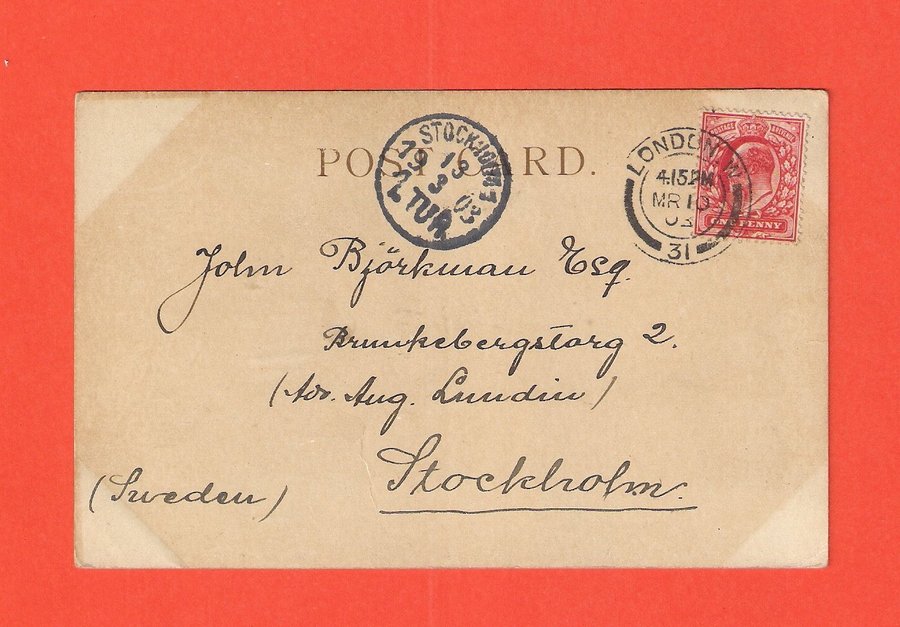 POST CARD.
STOCKHOLM 1
13
3
03
TUR
LONDON.W
4.15PM
MR 10
03
31
POSTAGE REVENUE
ONE PENNY
John Björkman Esq.
Brunkebergstorg 2.
(Adr. Aug. Lundin)
Stockholm.
(Sweden)